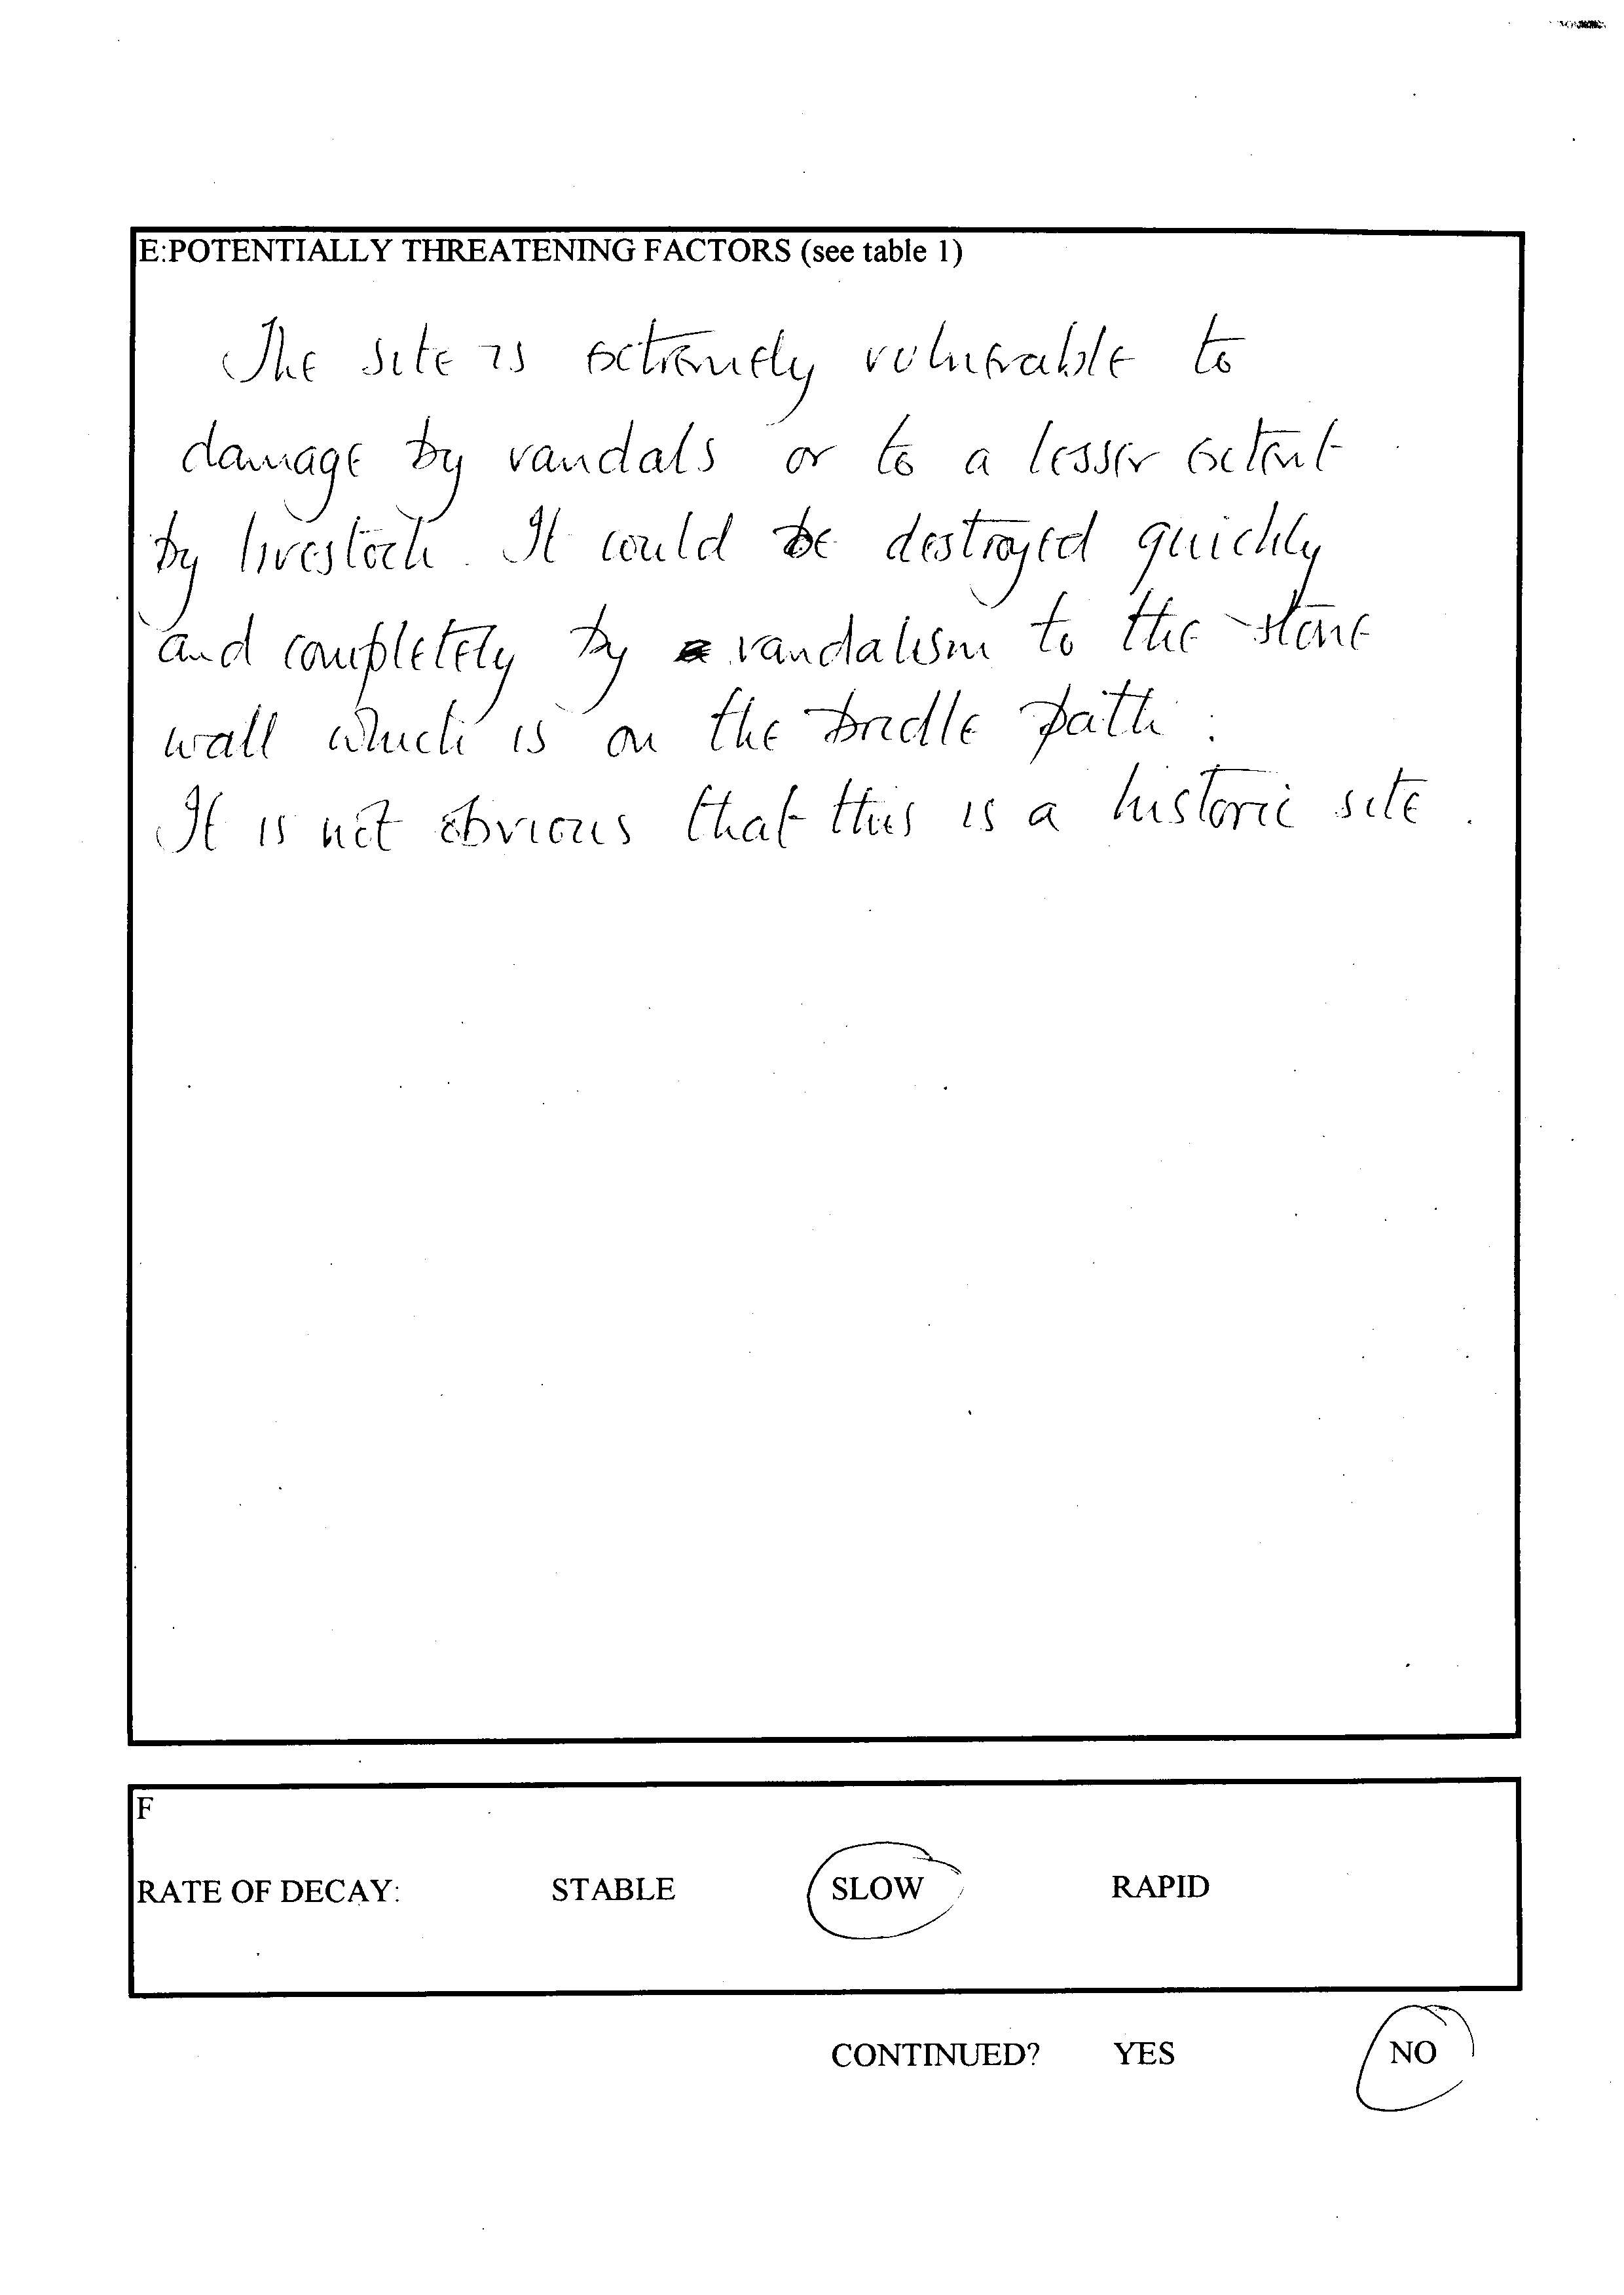 E:POTENTIALLY THREATENING FACTORS (see table 1)
The site is extremely vulnerable to
damage by vandals or to a lesser extent
by livestock. It could be destroyed quickly
and completely by vandalism to the stone
wall which is on the bridle path.
It is not obvious that this is a historic site.
F
RATE OF DECAY: STABLE SLOW RAPID
CONTINUED? YES NO